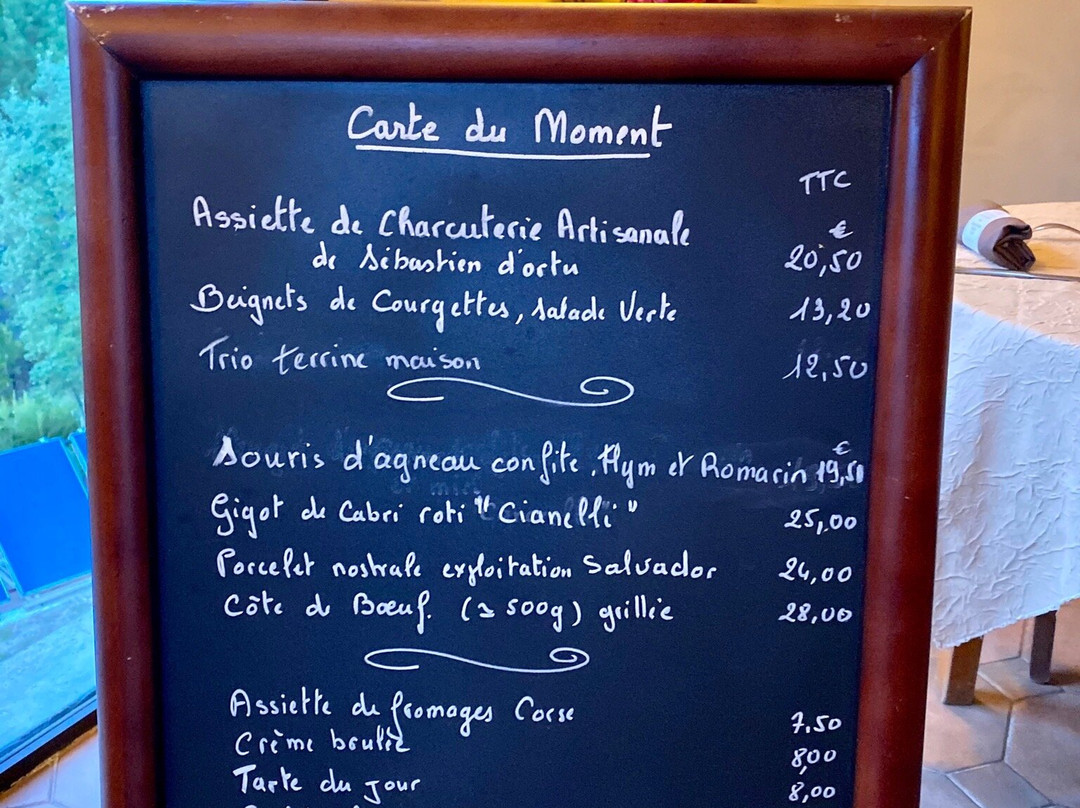 Carte du Moment
TTC
Assiette de Charcuterie Artisanale €
de Sébastien d'ortu 20,50
Beignets de Courgettes, salade Verte 13,20
Trio terrine maison 12,50
€
Souris d'agneau confite, thym et Romarin 19,50
Gigot de Cabri roti "Cianelli" 25,00
Porcelet nostrale exploitation Salvador 24,00
Côte de Bœuf. (≃ 500g) grillée 28,00
Assiette de fromages Corse 7,50
Crème brulée 8,00
Tarte du jour 8,00